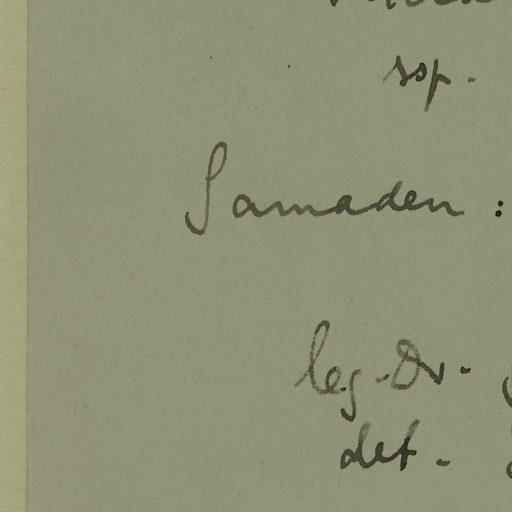 ssp.
Samaden :
leg. Dr.
det.